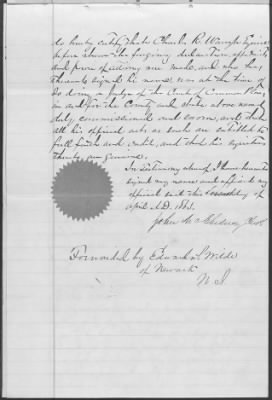 do hereby certify, that Charles R. Waugh Esquire
before whom the foregoing declaration, affidavit
and power of attorney were made, and who has
thereunto signed his name, was at the time of
so doing a Judge of the Court of Common Pleas,
in and for the County and State above named
duly commissioned and sworn, and that
all his official acts as such are entitled to
full faith and credit, and that his signature
thereto is genuine.
In testimony whereof, I have hereunto
signed my name and affixed my
official seal this day of
April A.D. 1863.
John M. Clerk
Forwarded by Edward S. Wilde
of Newark
N J